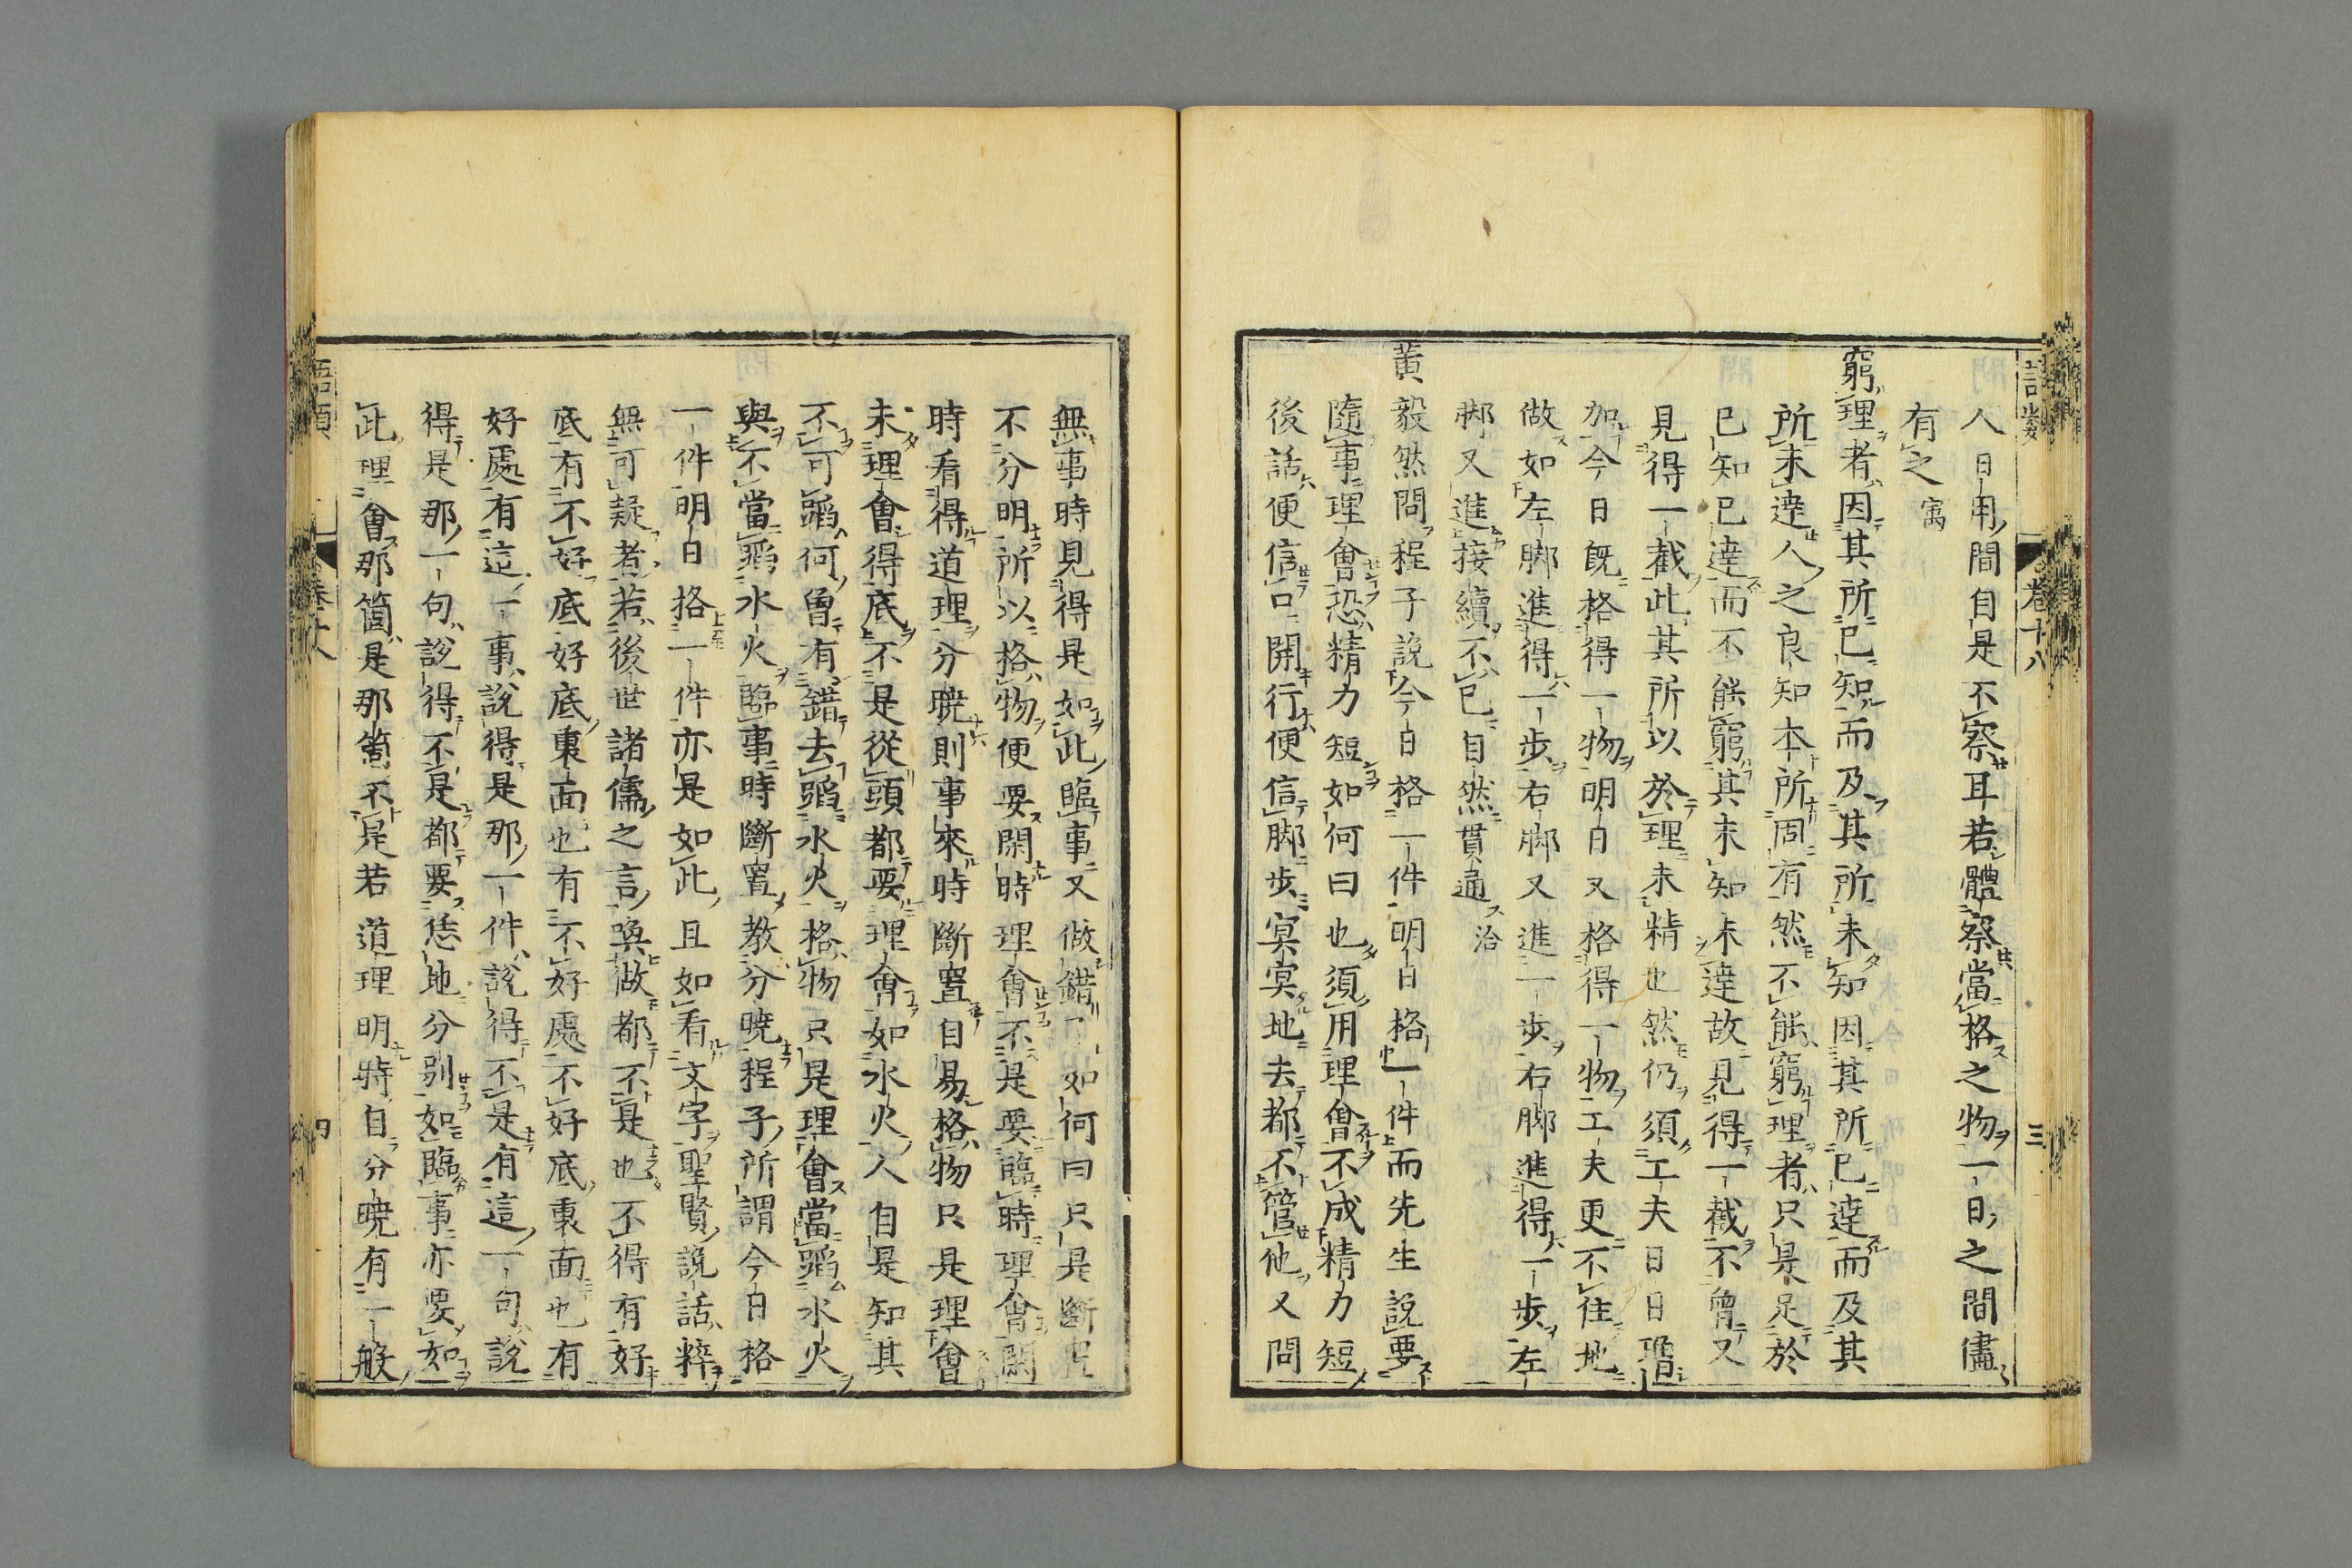 語類 卷十八 三
人日用間自是不察耳若體察當格之物一日之間儘
有之 㝢
窮理者因其所已知而及其所未知因其所已達而及其
所未達人之良知本所固有然不能窮理者只是足於
已知已達而不能窮其未知未達故見得一截不曾又
見得一截此其所以於理未精也然仍須工夫日日增
加今日既格得一物明日又格得一物工夫更不住地
做如左脚進得一步右脚又進一步右脚進得一步左
脚又進接續不已自然貫通 洽
黃毅然問程子說今日格一件明日格一件而先生說要
隨事理會恐精力短如何曰也須用理會不成精力短
後話便信口開行便信脚步冥冥地去都不管他又問
無事時見得是如此臨事又做錯了如何曰只是斷置
不分明所以格物便要閑時理會不是要臨時理會閑
時看得道理分曉則事來時斷置自易格物只是理會
未理會得底不是從頭都要理會如水火人自是知其
不可蹈何曾有錯去蹈水火格物只是理會當蹈水火
與不當蹈水火臨事時斷置教分曉程子所謂今日格
一件明日格一件亦是如此且如看文字聖賢說話粹
無可疑者若後世諸儒之言喚做都不是也不得有好
底有不好底好底裏面也有不好處不好底裏面也有
好處有這一事說得是那一件說得不是有這一句說
得是那一句說得不是都要恁地分别如臨事亦要如
此理會那箇是那箇不是若道理明時自分曉有一般
語類 卷十八 四